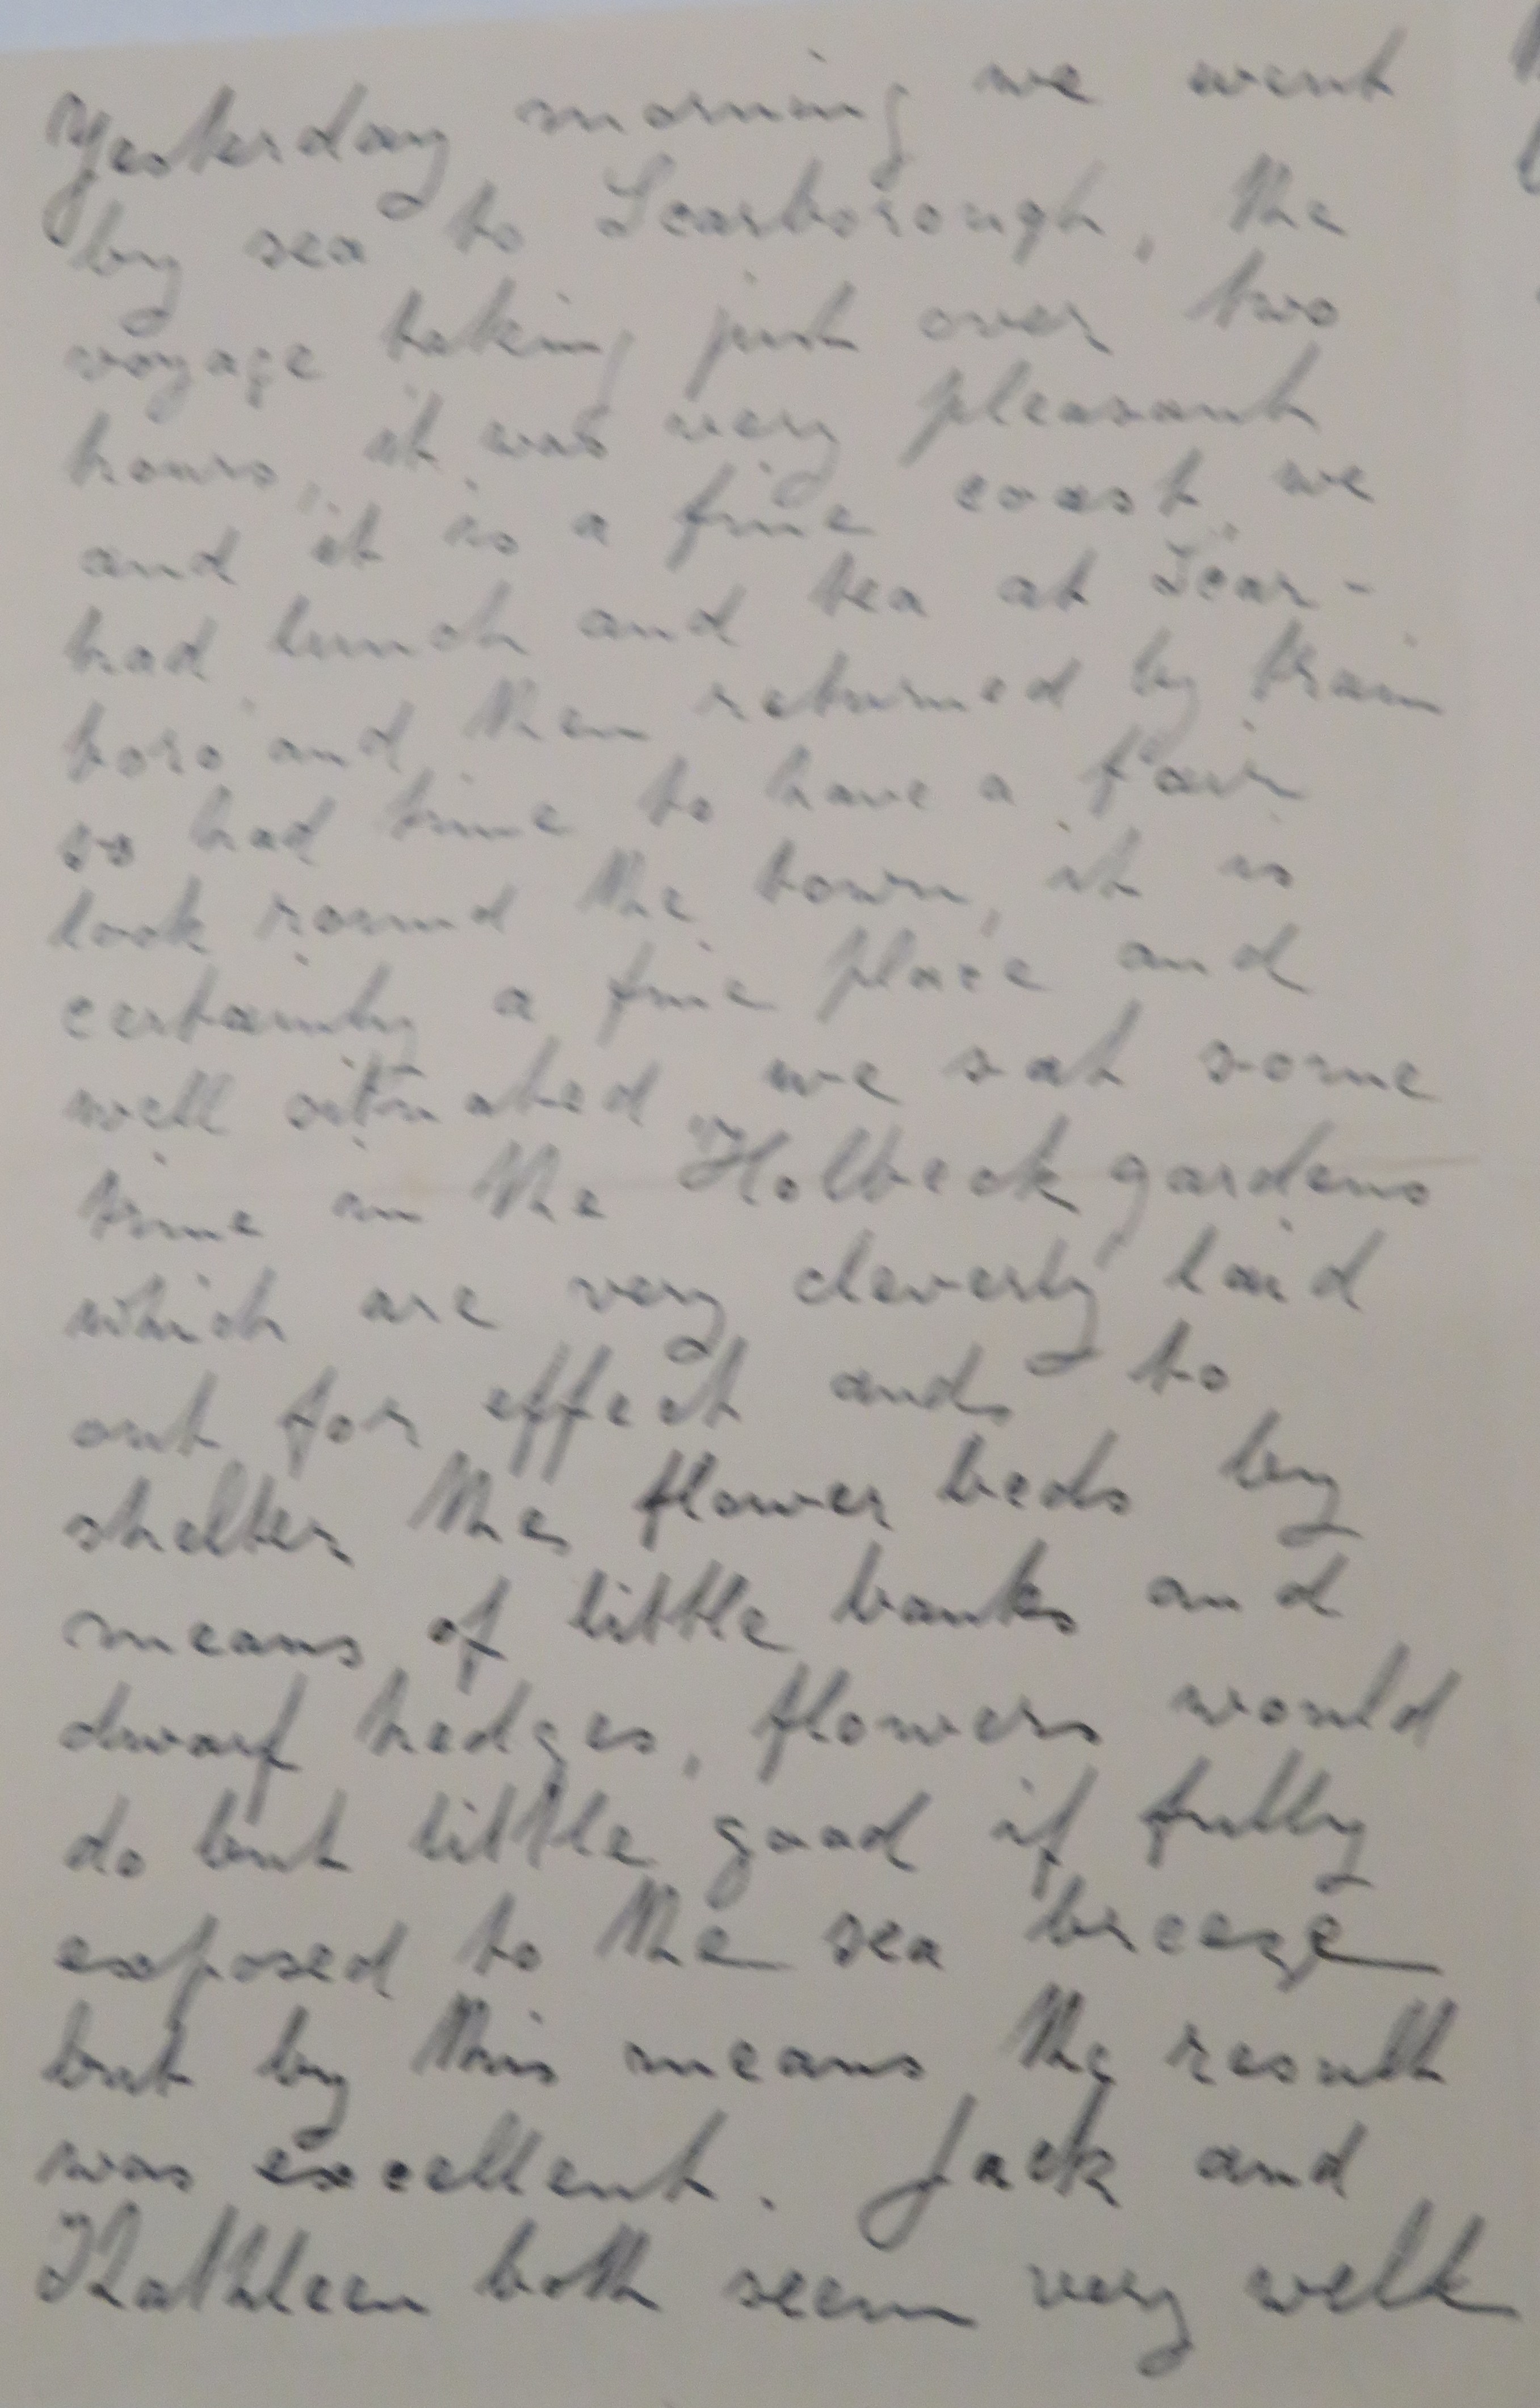 Yesterday morning we went
by sea to Scarborough, the
voyage taking just over two
hours, it was very pleasant
and it is a fine coast, we
had lunch and tea at Scar-
boro and then returned by train
so had time to have a fair
look round the town, it is
certainly a fine place and
well situated, we sat some
time in the Holbeck gardens
which are very cleverly laid
out for effect and to
shelter the flower beds by
means of little banks and
dwarf hedges, flowers would
do but little good if fully
exposed to the sea breeze
but by this means the result
was excellent. Jack and
Kathleen both seem very well